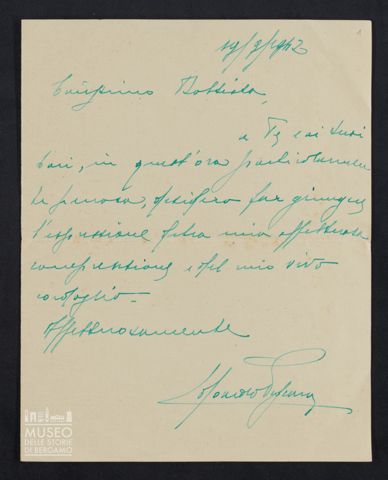 1
19/9/1942
Carissimo Battista,
a Te e ai Tuoi
cari, in quest'ora particolarmen
te penosa, desidero far giungere
l'espressione della mia affettuosa
comprensione e del mio vivo
cordoglio.
Affettuosamente
MUSEO
DELLE STORIE
DI BERGAMO